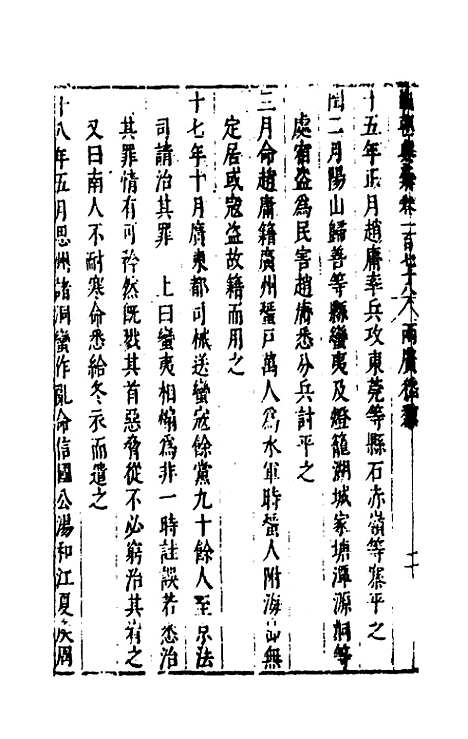 卷一百七十八 兩廣 二
十五年正月趙庸率兵攻東莞等縣石赤嶺等寨平之
閏二月陽山歸善等縣蠻夷及燈籠湖城家塘潭源洞等
處宿盜為民害趙庸悉分兵討平之
三月命趙庸籍廣州蜑戶萬人為水軍時蜑人附海島無
定居或寇盜故籍而用之
十七年十月廣東都司械送蠻寇餘黨九十餘人至京法
司請治其罪 上曰蠻夷相煽為非一時詿誤若悉治
其罪情有可矜然既戮其首惡脅從不必窮治其宥之
又曰南人不耐寒命悉給冬衣而遣之
十八年五月思州諸洞蠻作亂命信國公湯和江夏侯周